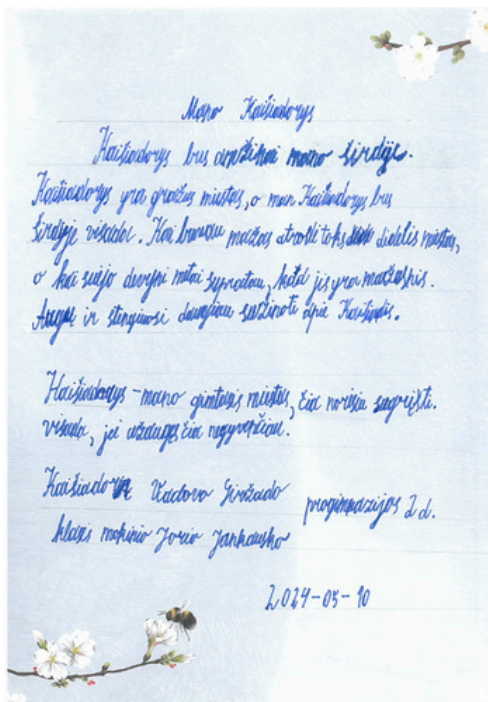 Mano Kaišiadorys
Kaišiadorys bus amžinai mano širdyje.
Kaišiadorys yra gražus miestas, o man Kaišiadorys bus
širdyje visada. Kai buvau mažas atrodė toks didelis miestas,
o kai suėjo devyni metai supratau, kad jis yra mažesnis.
Augu ir stengiuosi daugiau sužinoti apie Kaišiadoris.
Kaišiadorys - mano gimtasis miestas, čia norėsiu sugrįžti.
visada, jei užaugęs čia negyvenčiau.
Kaišiadorių Vaclovo Giržado progimnazijos 2 d.
klasės mokinio Jorio Jankausko
2024-05-10